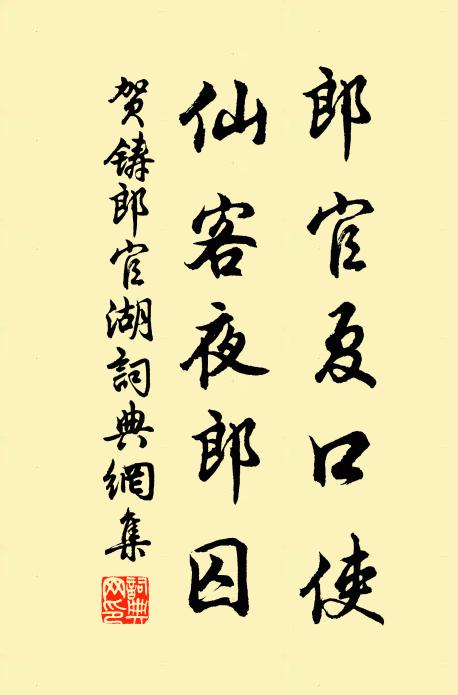 郎官夏口使
仙客夜郎囚
賀鑄郎官湖詞典網集
詞典